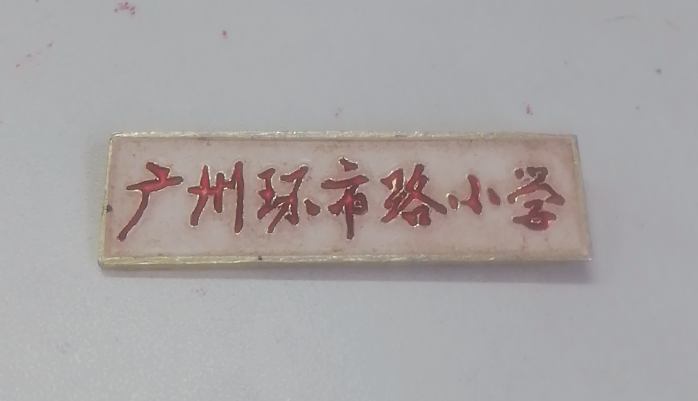 广州环市路小学